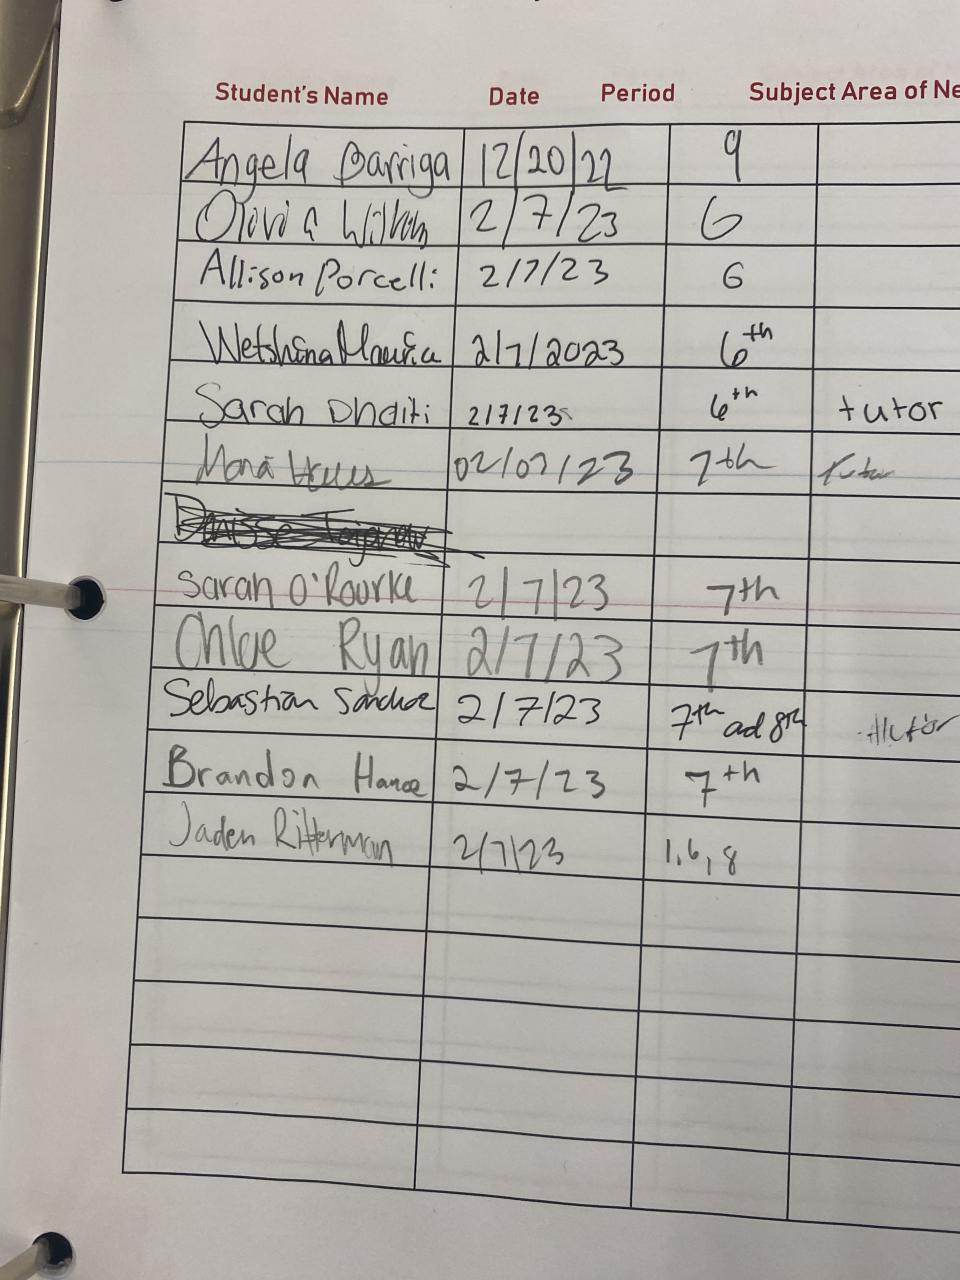 Student's Name Date Period Subject Area of Ne
Angela Barriga 12/20/22 9
Olivia 2/7/23 6
Allison Porcelli 2/7/23 6
2/7/2023 6th
Sarah Dhaiti 2/7/23 6th tutor
02/07/23 7th tutor
Sarah O'Rourke 2/7/23 7th
Chloe Ryan 2/7/23 7th
Sebastian 2/7/23 7th ad 8th tutor
Brandon 2/7/23 7th
Jaden Ritterman 2/7/23 1,6,8